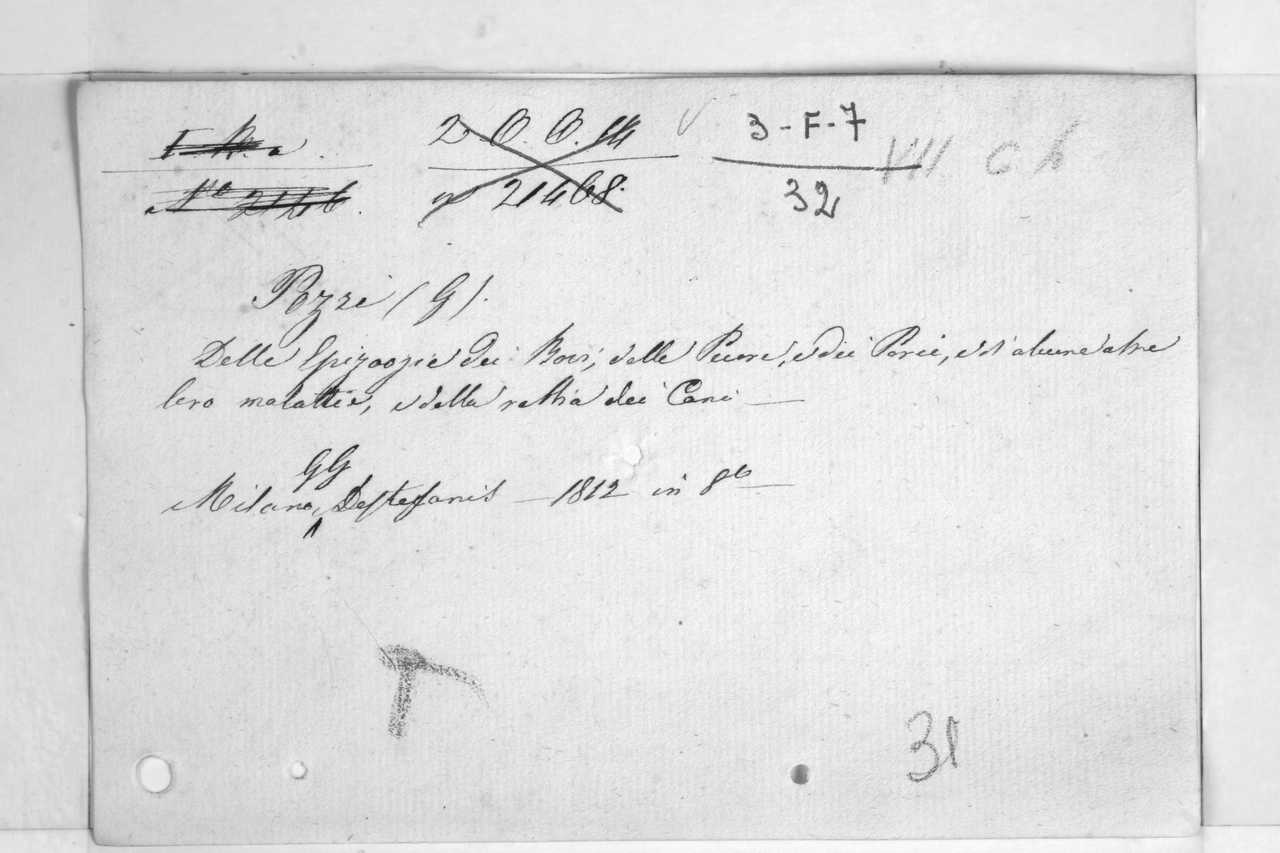 2 O. O. 14
3-F-7
VII C b
n° 21468.
32
Pozzi (G).
Delle Epizoozie dei Bovi, delle Pecore, e dei Porci, e d'alcune altre
loro malattie, e della rabbia dei Cani —
GG
Milano, Destefanis — 1812 in 8° —
T
31